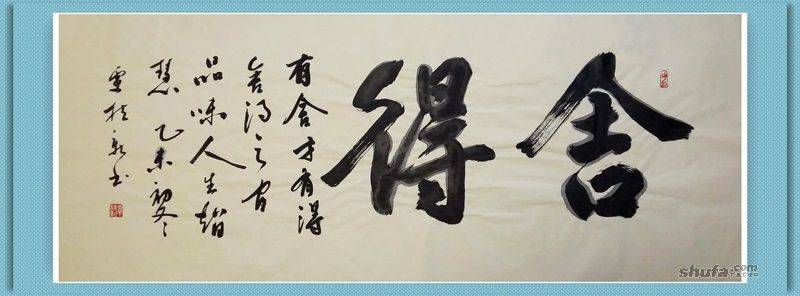 舍得
有舍才有得
舍得之间
品味人生智
慧 乙未初冬
书
shufa.com